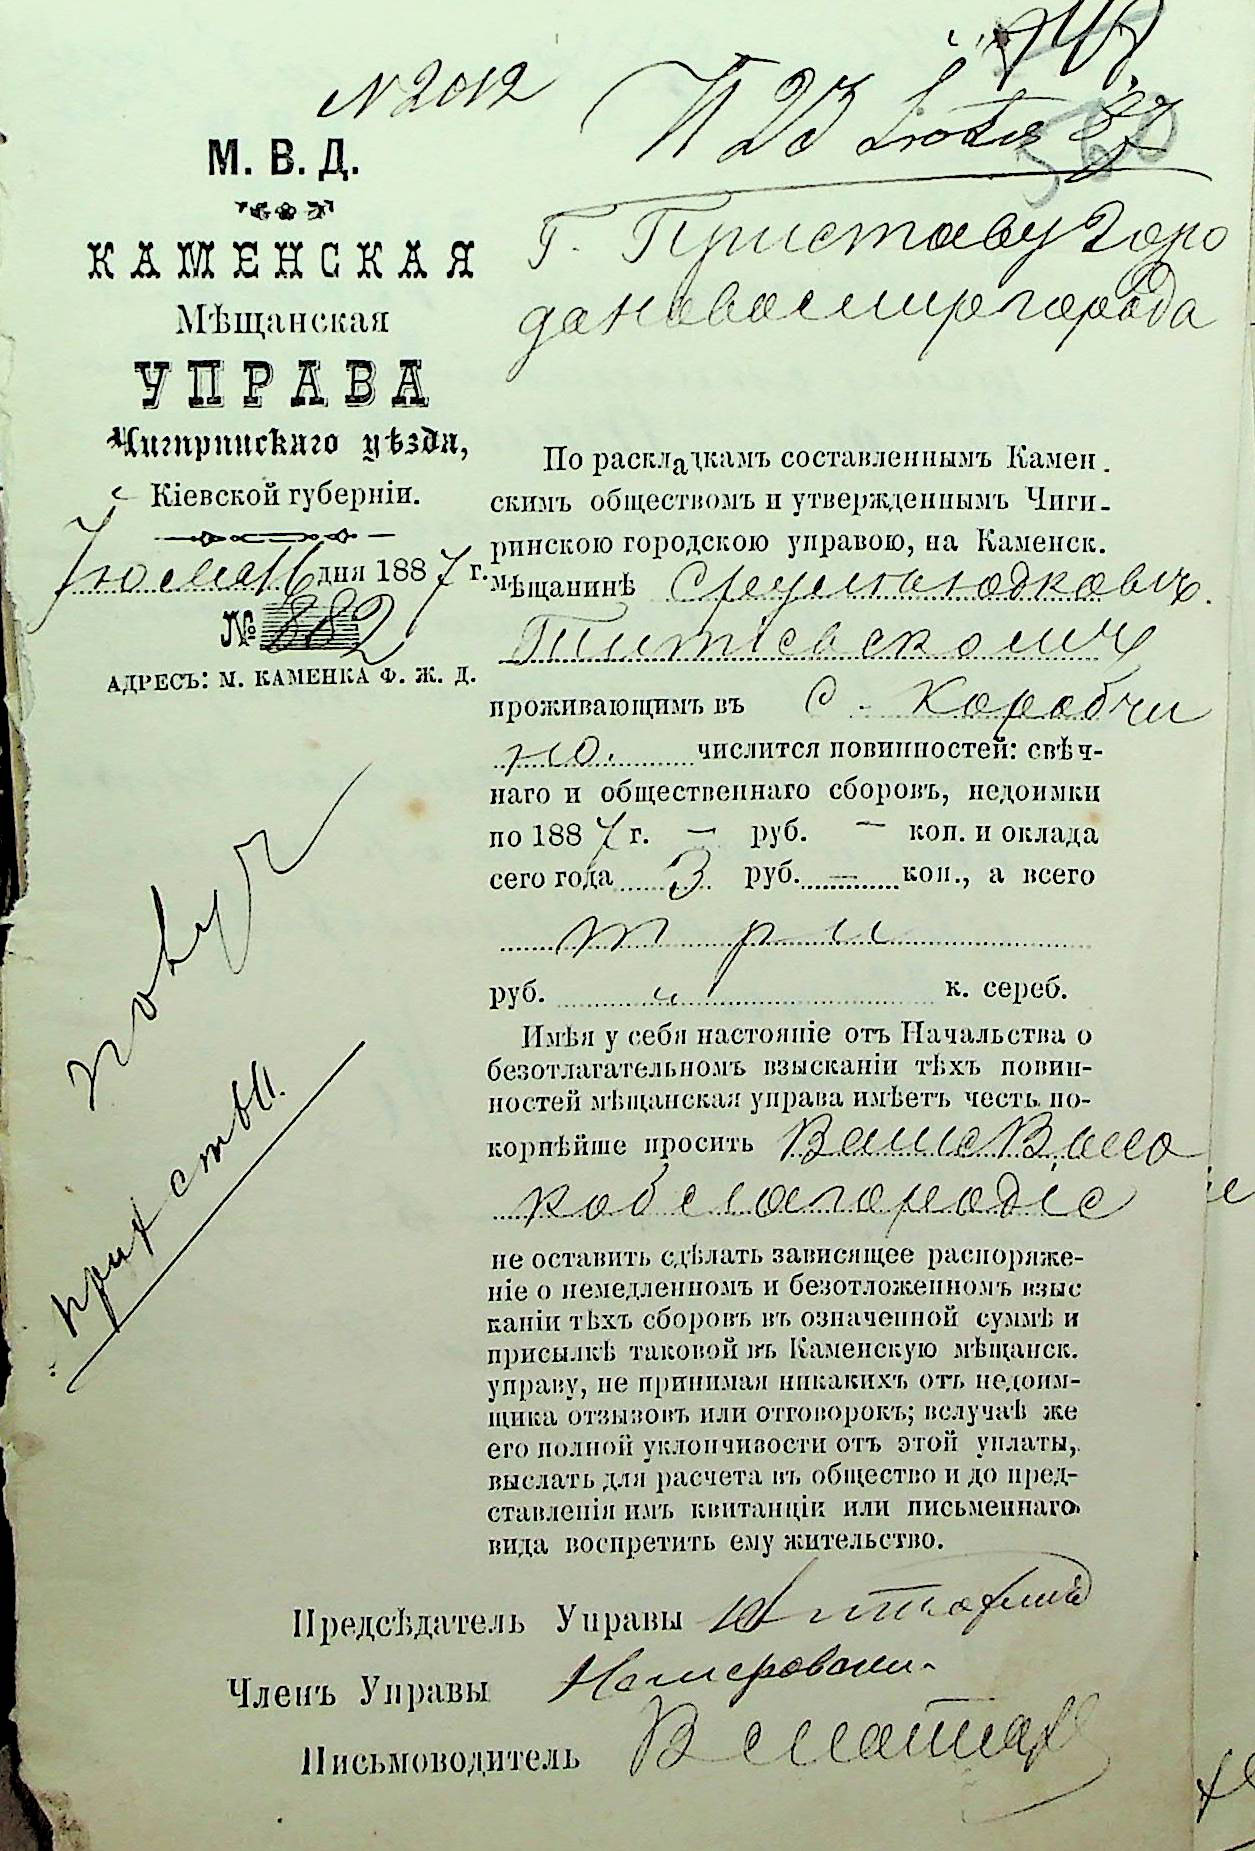 N 2012
П 23 Іюля 87
560
М. В. Д.
КАМЕНСКАЯ
Мѣщанская
УПРАВА
Чигиринскаго уѣзда,
Кіевской губерніи.
Іюля 16 дня 1887 г.
№ 882
АДРЕСЪ: М. КАМЕНКА Ф. Ж. Д.
Г. Приставу Горо
да Новомиргорода
По раскладкамъ составленнымъ Камен-
скимъ обществомъ и утвержденнымъ Чиги-
ринскою городскою управою, на Каменск.
мѣщанинѣ Сруль Юдковъ
Титіевскомъ
проживающимъ въ с. Коробчи
но. числится повинностей: свѣч-
наго и общественнаго сборовъ, недоимки
по 1887 г. — руб. — коп. и оклада
сего года 3 руб. — коп., а всего
три
руб. к. сереб.
Имѣя у себя настояніе отъ Начальства о
безотлагательномъ взысканіи тѣхъ повин-
ностей мѣщанская управа имѣетъ честь по-
корнѣйше просить Ваше Высо
коблагородіе
не оставить сдѣлать зависящее распоряже-
ніе о немедленномъ и безотложенномъ взыс
каніи тѣхъ сборовъ въ означенной суммѣ и
присылкѣ таковой въ Каменскую мѣщанск.
управу, не принимая никакихъ отъ недоим-
щика отзывовъ или отговорокъ; вслучаѣ же
его полной уклончивости отъ этой уплаты,
выслать для расчета въ общество и до пред-
ставленія имъ квитанціи или письменнаго
вида воспретить ему жительство.
Предсѣдатель Управы
Членъ Управы
Письмоводитель